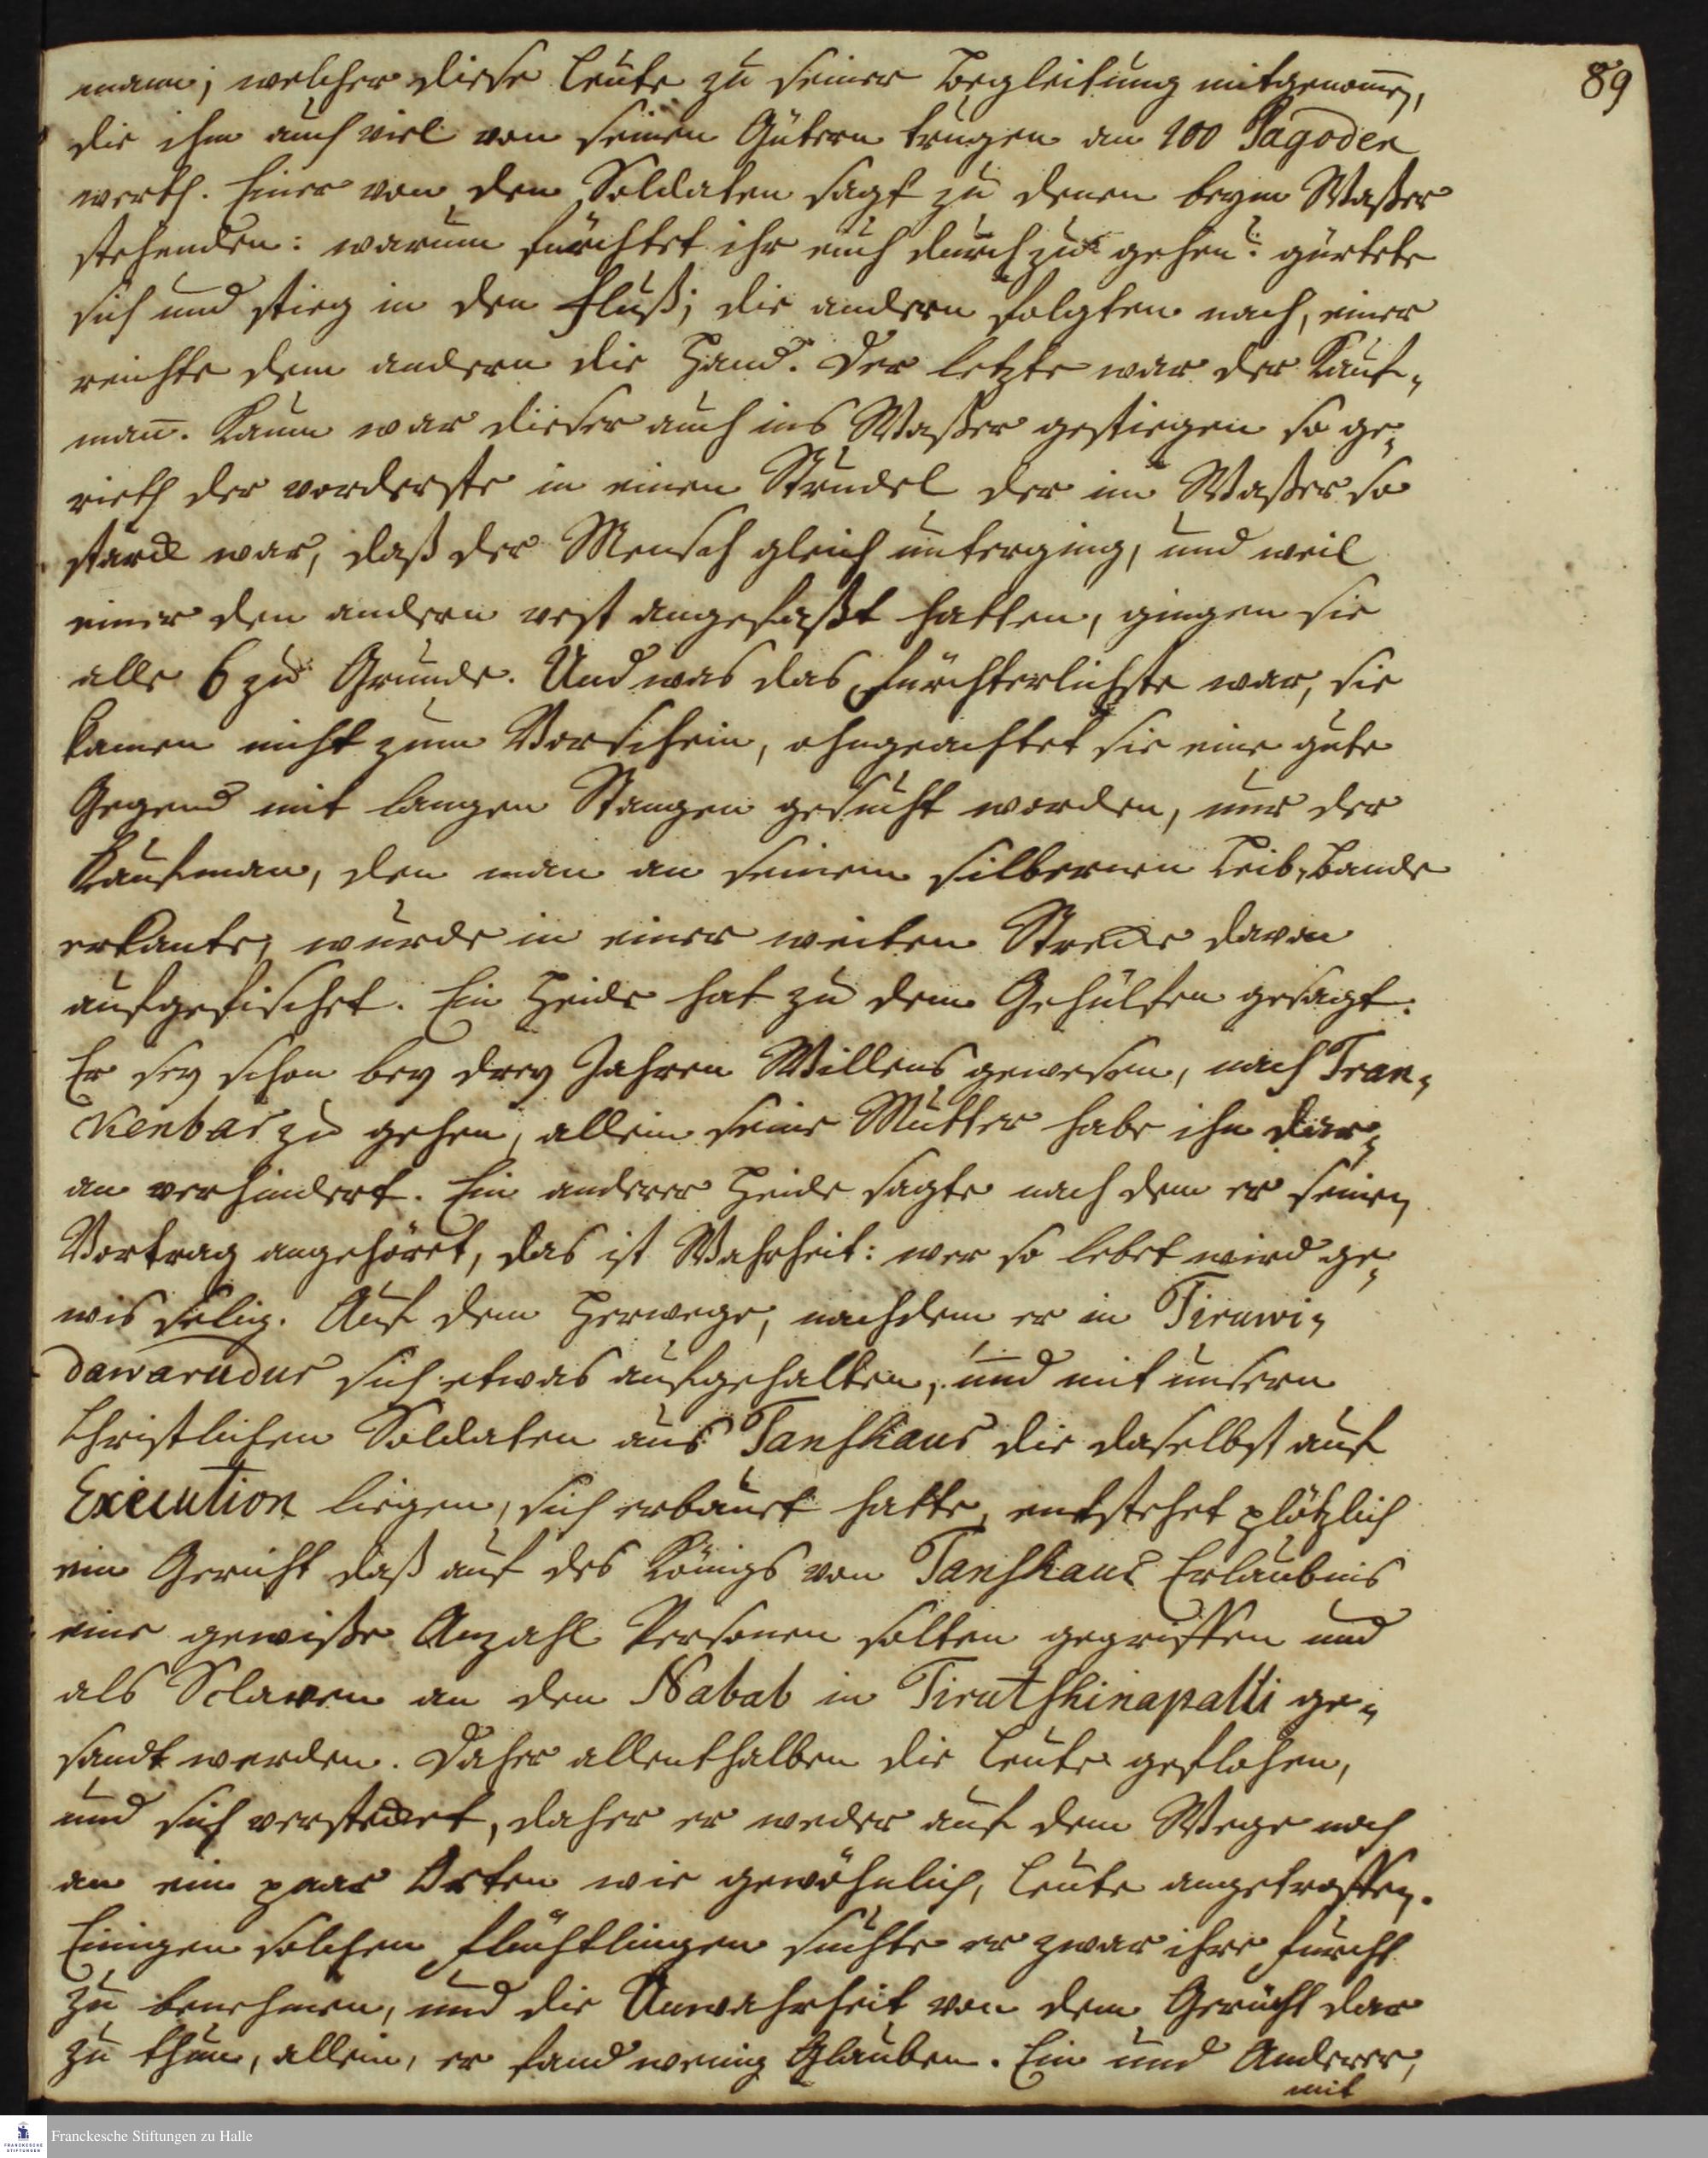 89
mann; welcher diese Leute zu seiner Begleitung mitgenom̄en,
die ihm auch viel von seinen Gütern trugen an 100 Pagoden
werth. Einer von den Soldaten sagt zu denen beym Waßer
stehenden: warum fürchtet ihr euch durchzu gehen? gürtete
sich und stieg in den Fluß; die andern folgten nach, einer
reichte dem andern die Hand. Der letzte war der Kauf-
man̄. Kaum war dieser auch ins Waßer gestiegen so ge-
rieth der vorderste in einen Strudel der im Waßer so
starck war, daß der Mensch gleich unterging, und weil
einer den andern vest angefaßt hatten, gingen sie
alle 6 zu Grunde. Und was das fürchterlichste war, sie
kamen nicht zum Vorschein, ohngeachtet sie eine gute
Gegend mit langen Stangen gesucht worden, nur der
Kaufman, den man an seinem silbernen Leib-Bande
erkante, wurde in einer weiten Strecke davon
aufgefischet. Ein Heide hat zu dem Gehülfen gesagt:
Er sey schon bey drey Jahren Willens gewesen, nach Tran-
kenbar zu gehen, allein seine Mutter habe ihn dar-
an verhindert. Ein anderer Heide sagte nach dem er seinen
Vortrag angehöret, das ist Wahrheit: wer so lebet wird ge-
wis selig. Auf dem Herwege, nachdem er in Tiruwi-
dawarudur sich etwas aufgehalten, und mit unsern
Christlichen Soldaten aus Tanshaur die daselbst auf
Execution liegen, sich erbauet hatte, entstehet plötzlich
ein Gerücht daß auf des Königs von Tanshaur Erlaubnis
eine gewiße Anzahl Personen solten gegriffen und
als Sclaven an den Nabab in Tirutshinapalli ge-
sandt werden. Daher allenthalben die Leute geflohen,
und sich verstecket, daher er weder auf dem Wege noch
an ein paar Orten wie gewöhnlich, Leute angetroffen.
Einigen solchen Flüchtlingen suchte er zwar ihre Furcht
zu benehmen, und die Unwahrheit von dem Gerücht dar
zu thun, allein, er fand wenig Glauben. Ein und Anderer,
mit
FRANCKESCHE STIFTUNGEN
Franckesche Stiftungen zu Halle